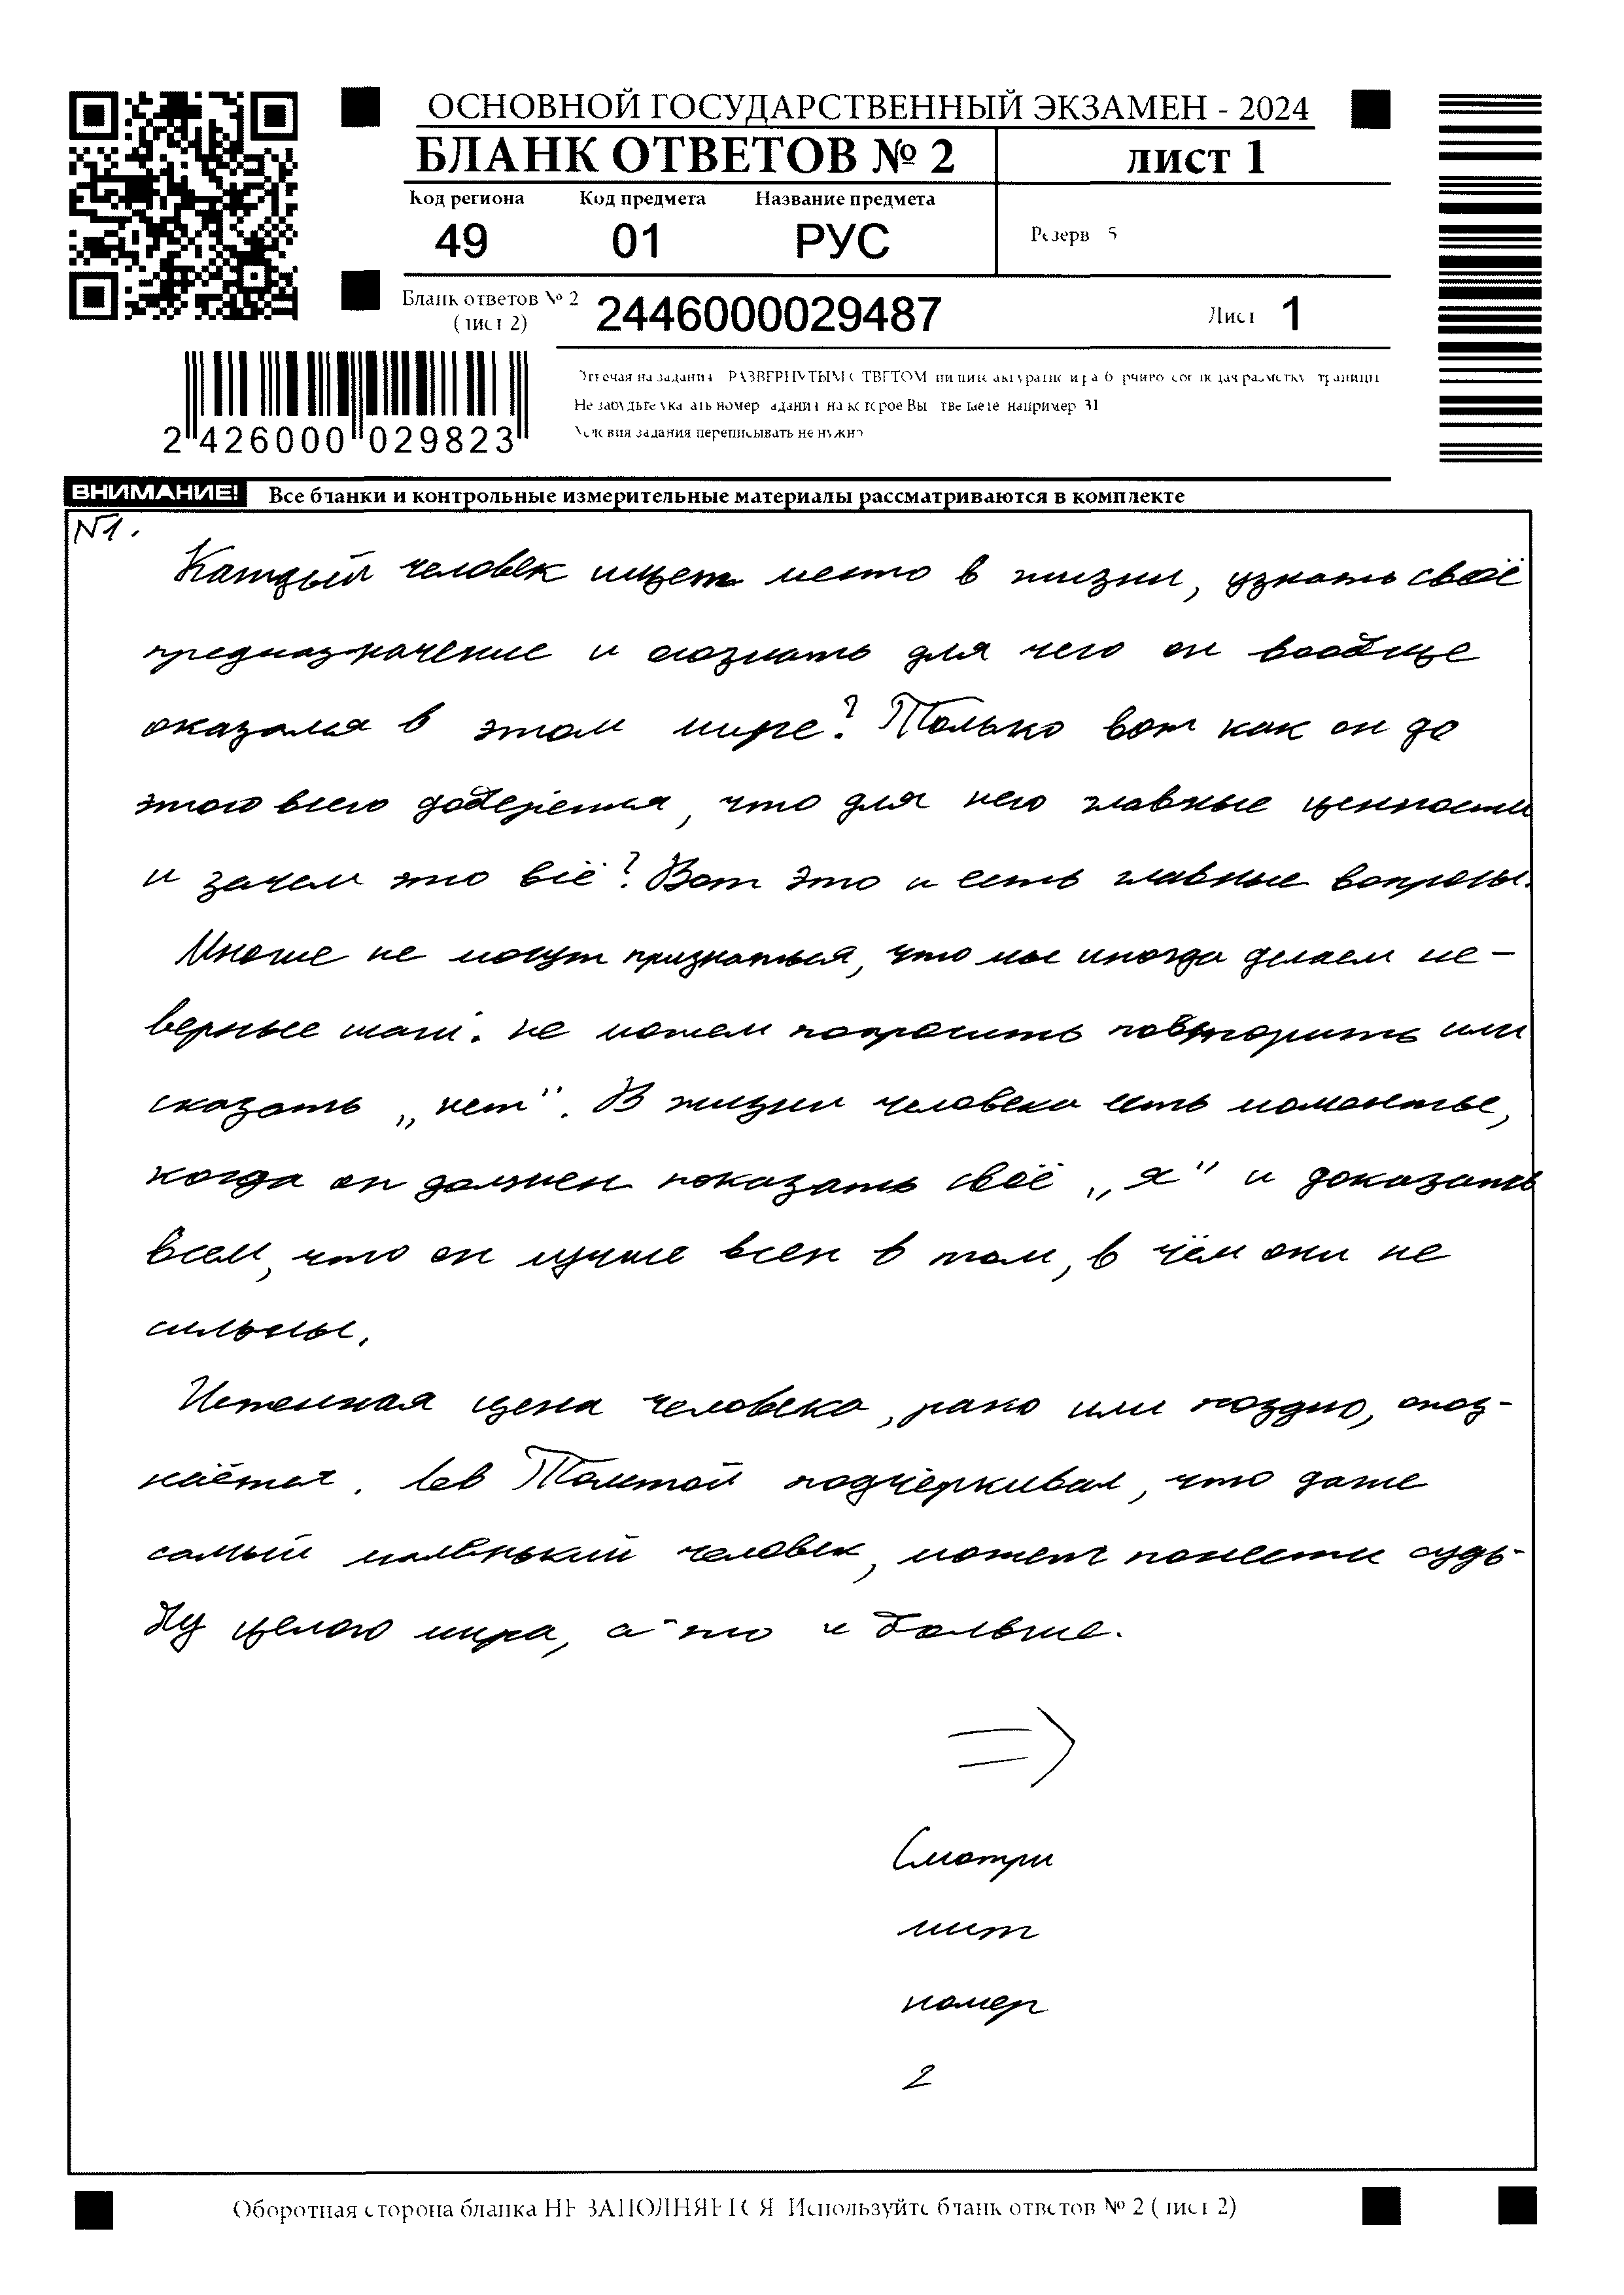 ОСНОВНОЙ ГОСУДАРСТВЕННЫЙ ЭКЗАМЕН - 2024
БЛАНК ОТВЕТОВ № 2
лист 1
Код региона Код предмета Название предмета
49 01 РУС
Резерв 5
Бланк ответов № 2
(лист 2)
2446000029487
Лист 1
2 426000 029823
Отвечая на задания РАЗВЕРНУТЫМ ОТВЕТОМ пишите аккуратно и разборчиво соблюдая разметку страницы
Не забудьте указать номер задания на которое Вы отвечаете например 31
Условия задания переписывать не нужно
ВНИМАНИЕ! Все бланки и контрольные измерительные материалы рассматриваются в комплекте
N1.
Каждый человек ищет место в жизни, узнать своё
предназначение и осознать для чего он вообще
оказался в этом мире? Только вот как он до
этого всего доберётся, что для него главные ценности
и зачем это всё? Вот это и есть главные вопросы.
Многие не могут признаться, что мы иногда делаем не-
верные шаги. не можем попросить повторить или
сказать „нет“. В жизни человека есть моменты,
когда он должен показать своё „я“ и доказать
всем, что он лучше всех в том, в чём они не
сильны.
Истенная цена человека, рано или поздно, опоз-
наётся. Лев Толстой подчёркивал, что даже
самый маленький человек, может понести судь-
бу целого мира, а-то и больше.
=>
Смотри
лист
номер
2
Оборотная сторона бланка НЕ ЗАПОЛНЯЕТСЯ Используйте бланк ответов № 2 (лист 2)